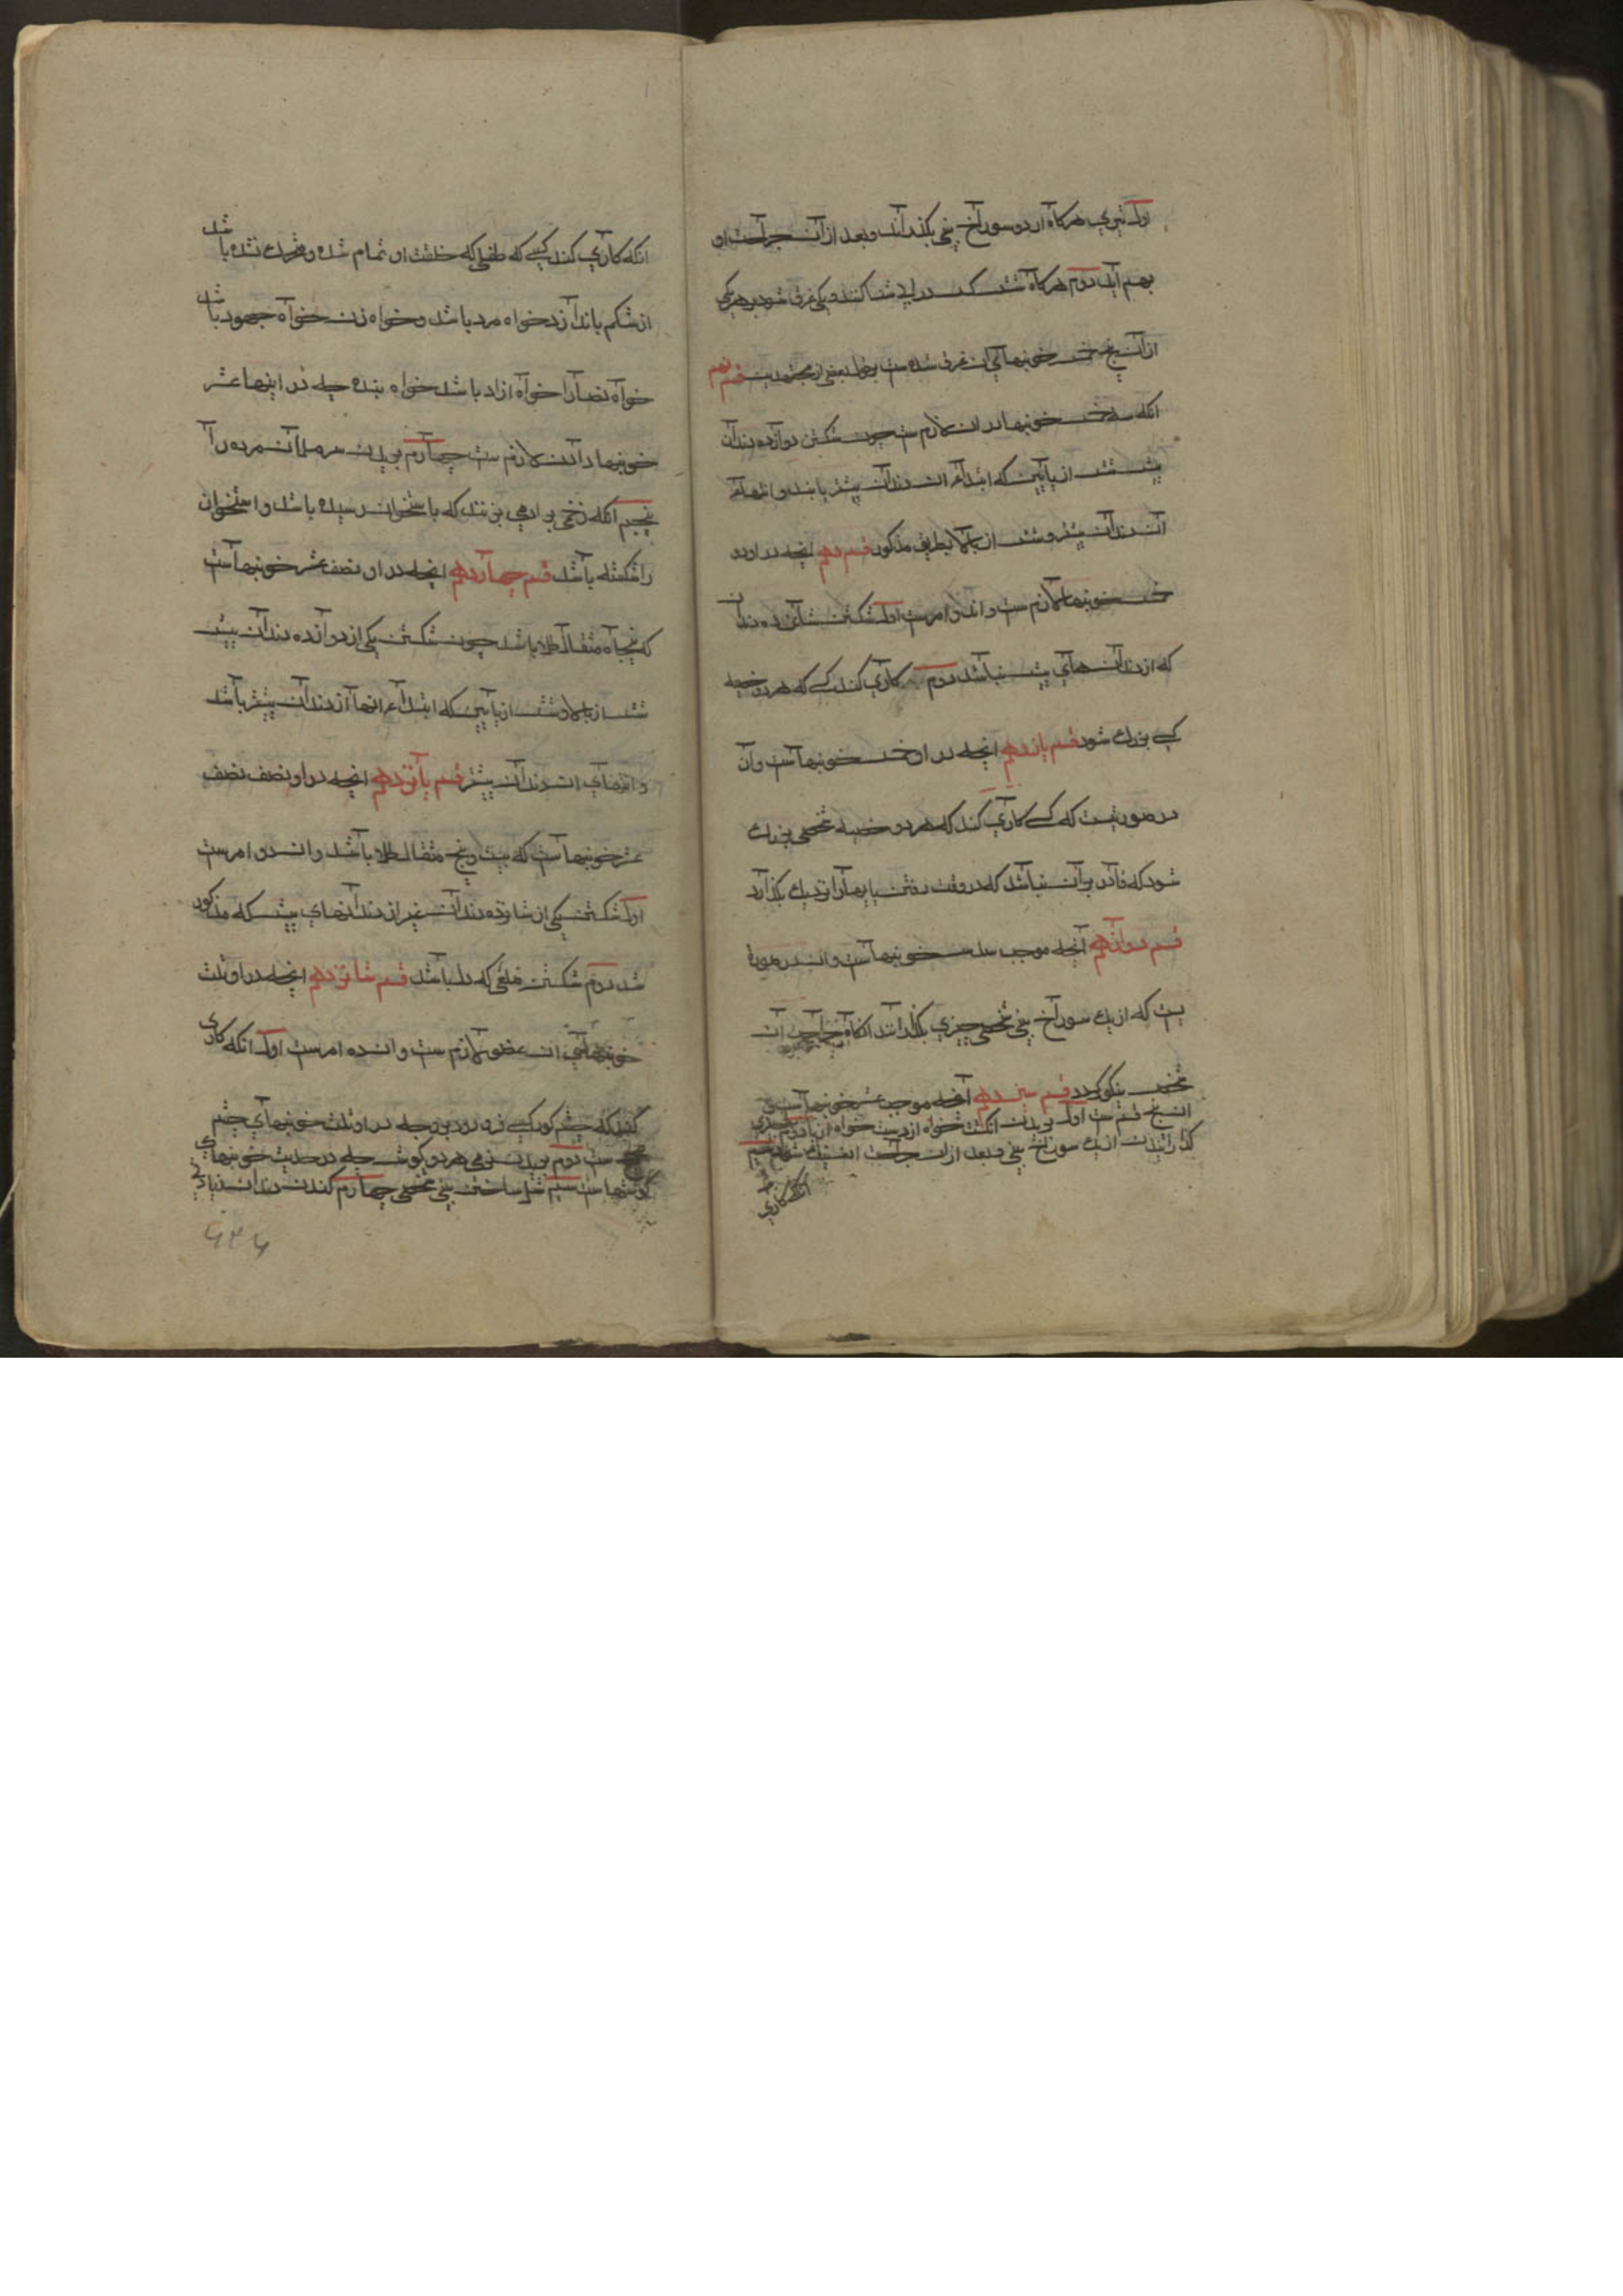 اول تیری هرکاه از دو سوراخ بینی بکذرانند و بعد از آن جراحت او
بهم آید دوم هرکاه شش کس در آب شنا کنند و یکی غرق شود بر هر یکی
از آن پنج خمس خونبهای آن غرق شده ست بقول بعضی از مجتهدین قسم نهم
انکه سدس خونبها در آن لازم ست چون شکستن دوازده دندان
پیش شش از پایین که ابتداء آن دندان پیشتر یابند و انتهاء
آن دندان پیشتر و شش از بالا بطریق مذکور قسم دهم انچه در او دو
خمس خونبها لازم ست و ان دو امرست اول شکستن شانزده دندان
که از دندان های پیش نباشد دوم کاری کند کسی که هر دو خصیه
کسی بزرك شود قسم یازدهم انچه در او خمس خونبهاست و آن
در صورتیست که کسی کاری کند که هر دو خصیه شخصی بزرك
شود که قادر بر آن نباشد که در وقت رفتن پایها را نزدیك بکذارد
قسم دوازدهم آنچه موجب سدس خونبهاست و ان در صورة
یست که از یك سوراخ بینی شخصی چیزی بکذرانند انکاه جراحت آن
شخص نیکو کردد قسم سیزدهم آنچه موجب عشر خونبهاست و
ان پنج قسم ست اول بریدن انکشت خواه از دست خواه از پا دوم چیزی
کذرانیدن از یك سوراخ بینی و بعد از ان جراحت ان نیك شود سیم
انکه کاری
انکه کاری کند کسی که طفلی که خلقت او تمام شده و متحرك نشده باشد
از شکم باندازد خواه مرد باشد و خواه زن خواه جهود باشد
خواه نصارا خواه ازاد باشد خواه بنده چه در اینها عشر
خونبها دادن لازم ست چهارم بریدن سر مسلمان مرده را
پنجم انکه زخمی بر ادمی بزنند که باستخوان رسیده باشد و استخوان
را شکسته باشد قسم چهاردهم انچه در او نصف عشر خونبهاست
که پنجاه مثقال طلا باشد چون شکستن یکی از دوازده دندان پیش
شش از بالا و شش از پایین که ابتداء انها از دندان پیشتر باشد
و انتهای ان دندان پیشتر قسم پانزدهم انچه در او نصف نصف
عشر خونبهاست که بیست و پنج مثقال طلا باشد و ان دو امرست
اول شکستن یکی از شانزده دندان غیر از دندانهای پیش که مذکور
شد دوم شکستن ضلعی که دل باشد قسم شانزدهم انچه در او ثلث
خونبهای ان عضو لازم ست و ان ده امرست اول انکه کاری
کند که چشم کور کسی فرو رود بن و چه در او ثلث خونبهای چشم
ست دوم بریدن نرمی هر دو کوش چه در حدیث خونبهای
کوشهاست سیم شل ساختن بینی شخصی چهارم کندن دندان زیادتی